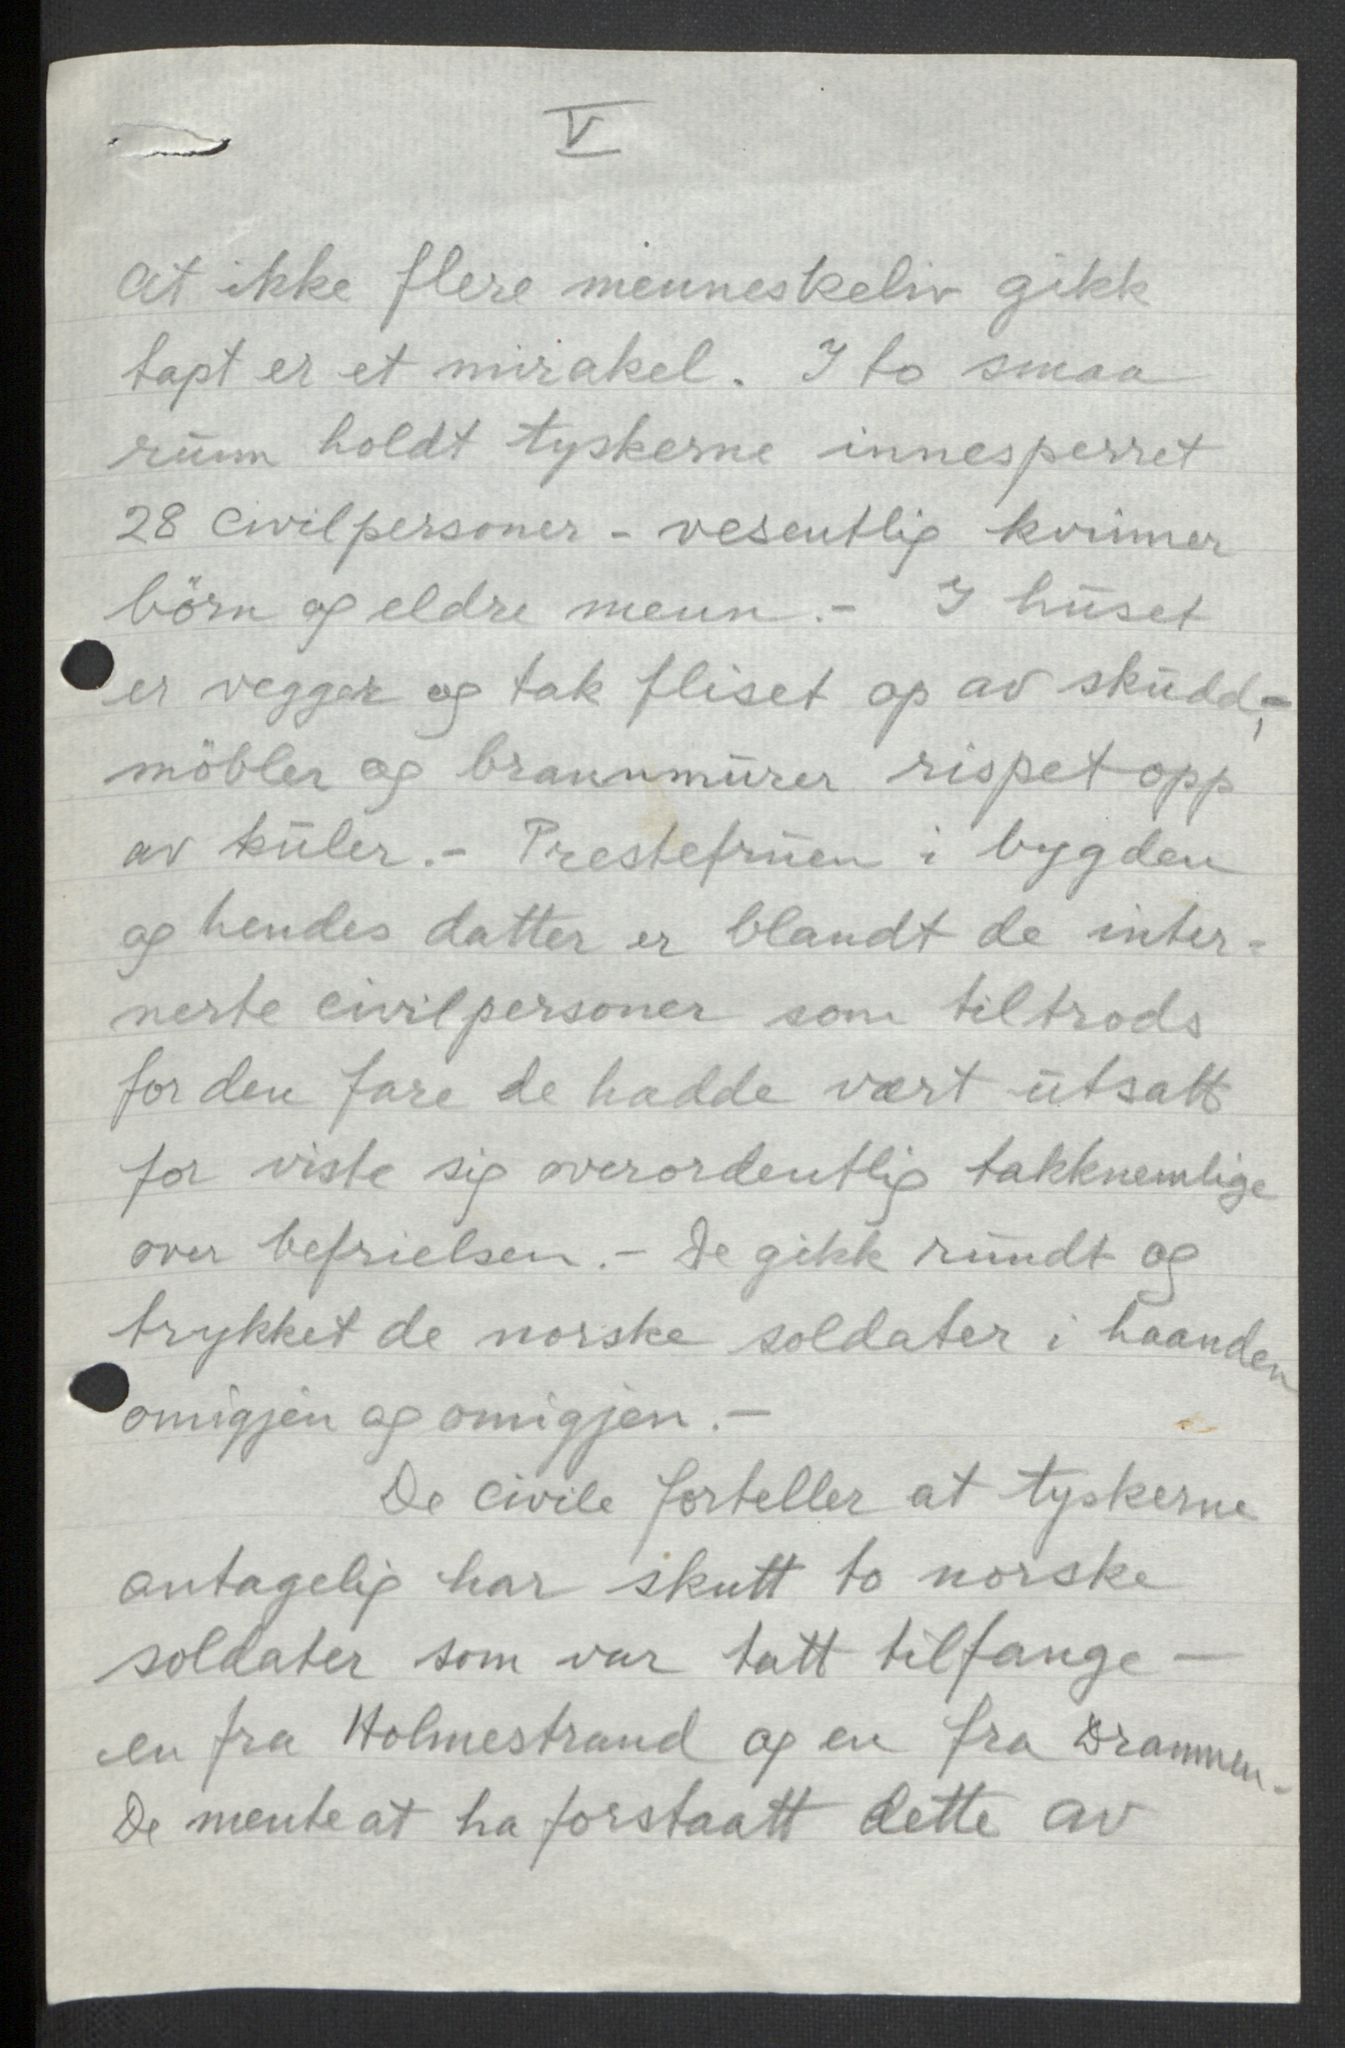 V
at ikke flere menneskeliv gikk
tapt er et mirakel. I to smaa
rum holdt tyskerne innesperret
28 civilpersoner - vesentlig kvinner
börn og eldre menn. - I huset
er vegger og tak fliset op av skudd, -
möbler og brannmurer rispet opp
av kuler. - Prestefruen i bygden
og hendes datter er blandt de inter-
nerte civilpersoner som tiltrods
for den fare de hadde vært utsatt
for viste sig overordentlig takknemlige
over befrielsen. - De gikk rundt og
trykket de norske soldater i haanden
omigjen og omigjen. -
De civile forteller at tyskerne
antagelig har skutt to norske
soldater som var tatt tilfange -
en fra Holmestrand og en fra Drammen -
De mente at ha forstaatt dette av